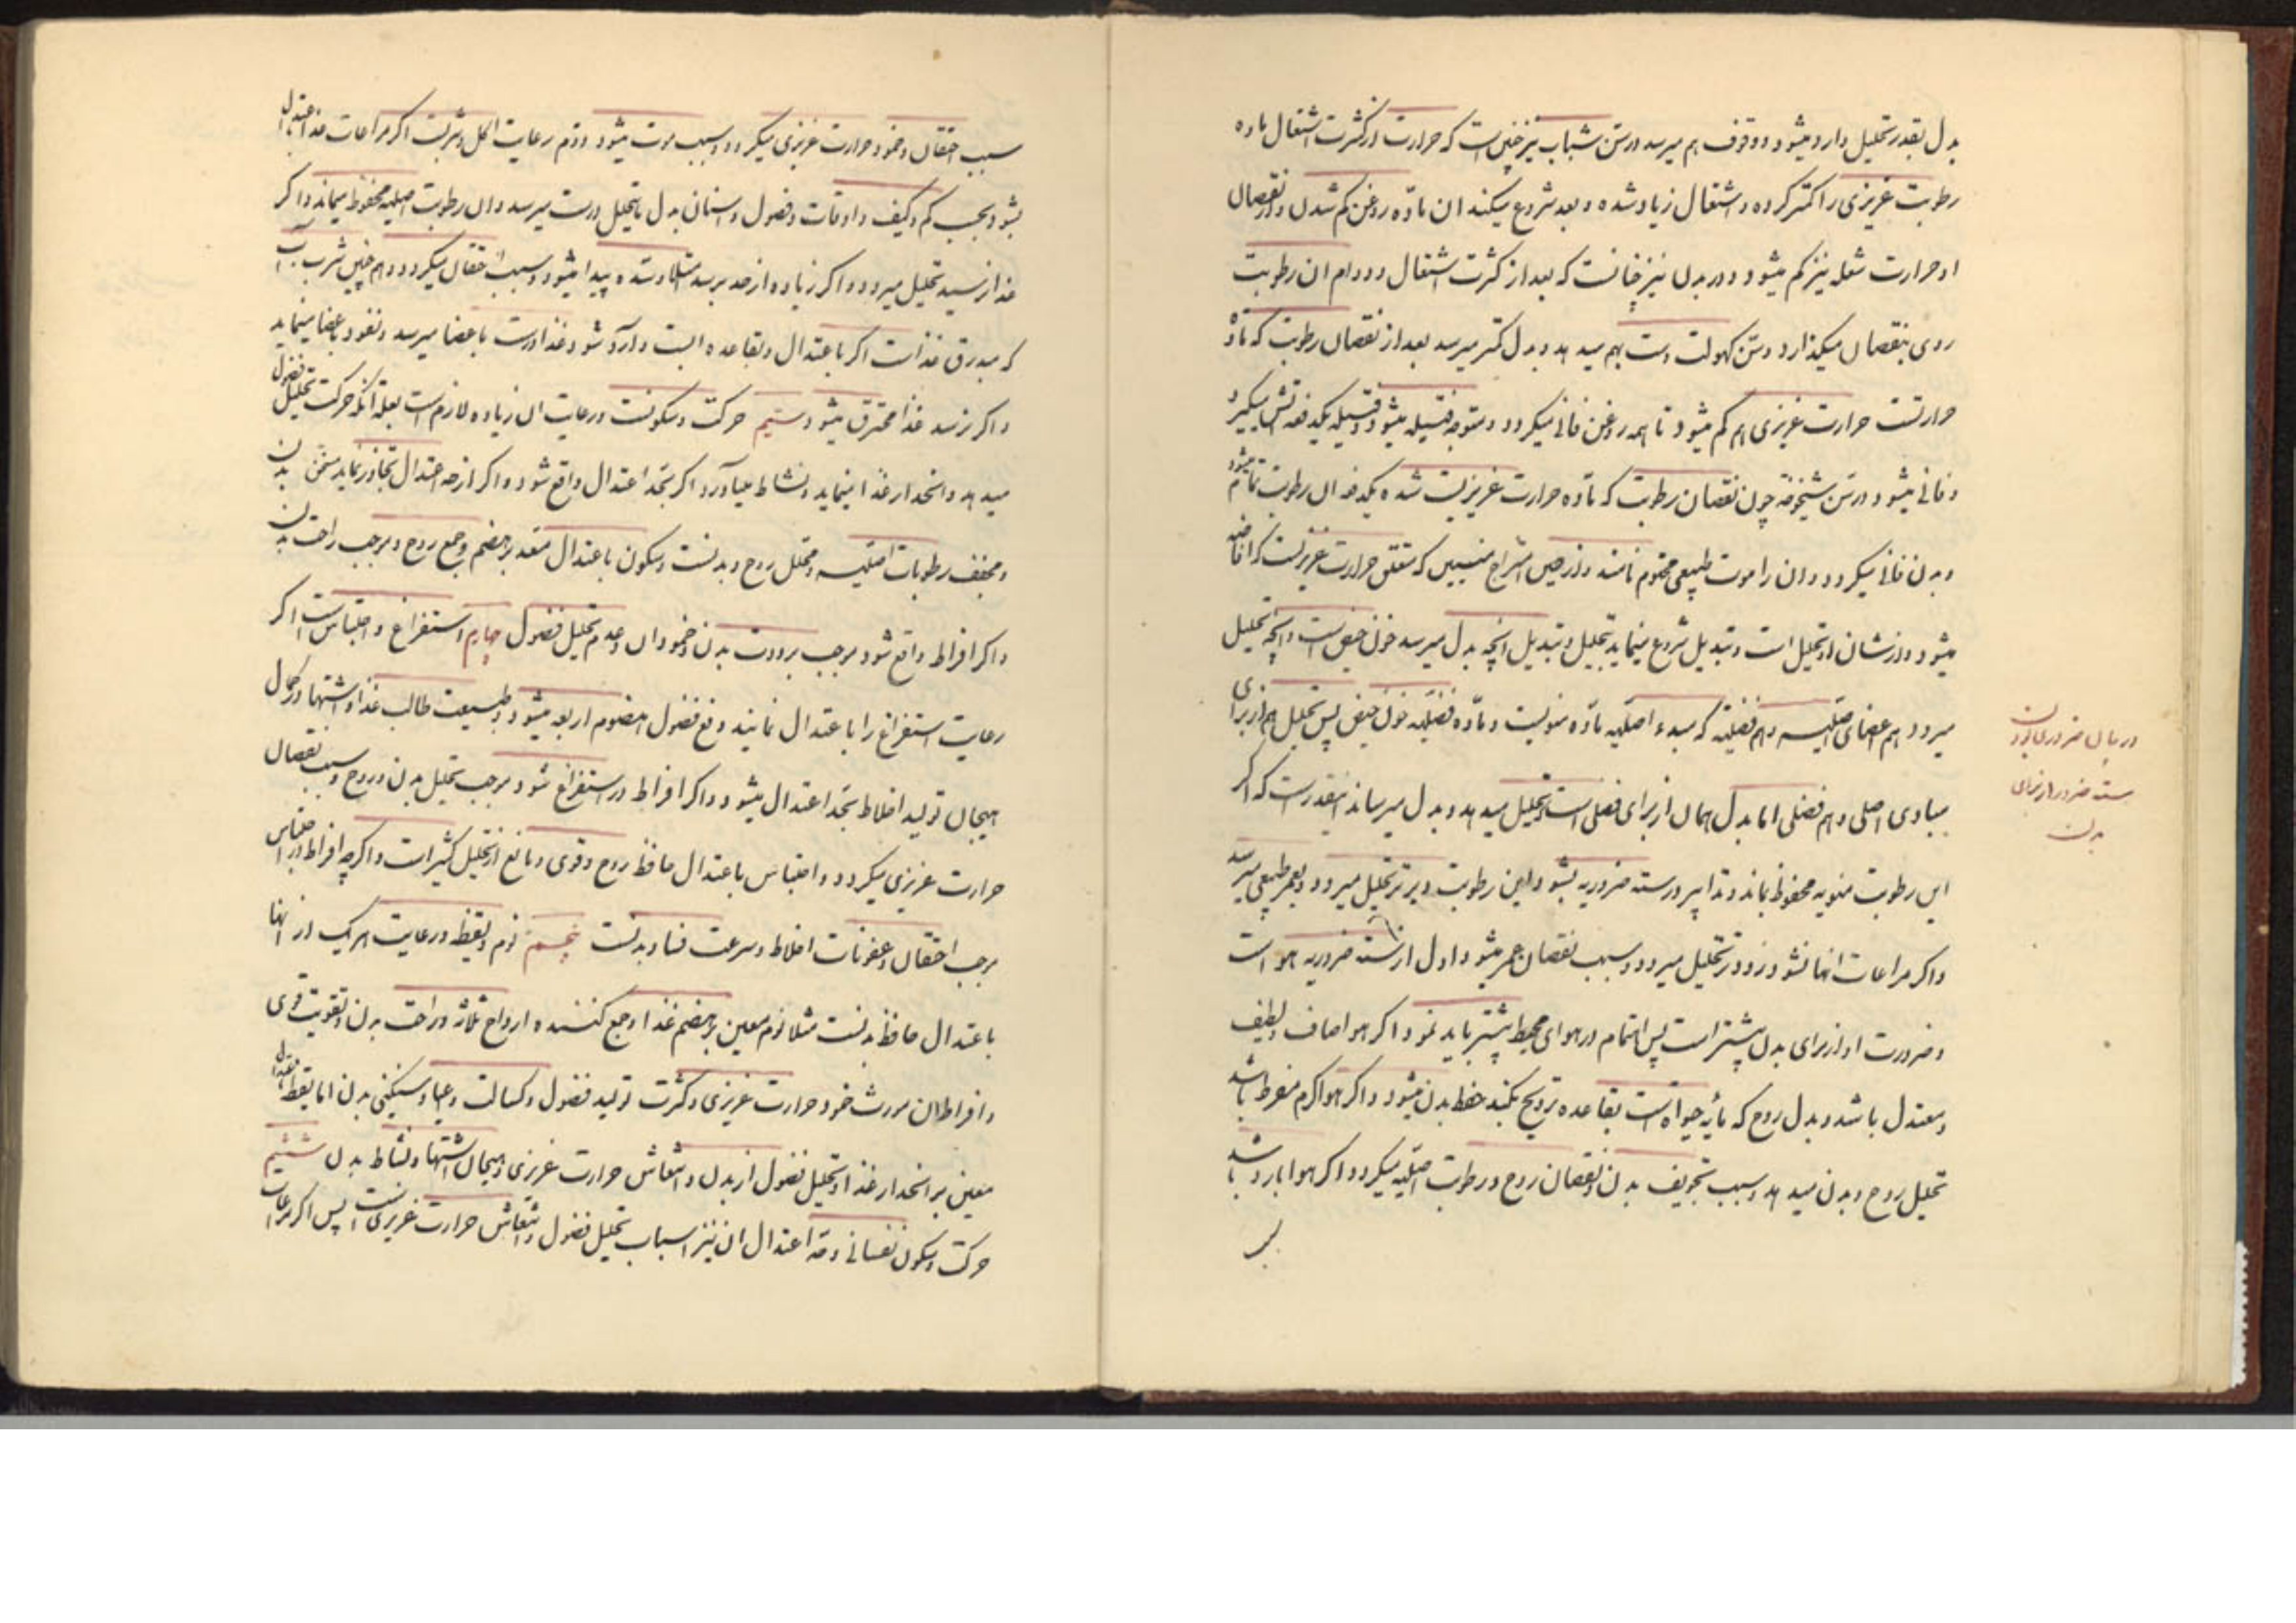 بدل بقدر تحلیل وارد میشود و وقوف بهم میرسد در سن شباب نیز چنین است که حرارت از کثرت اشتعال ماده
رطوبت غریزی را کمتر کرده و اشتعال زیاد شده و بعد شروع میکند ان ماده روغن کم شدن و از نقصان
او حرارت شعله نیز کم میشود و در بدن نیز چنانست که بعد از کثرت اشتعال و دوام ان رطوبت
روی بنقصان میگذارد و سن کهولت دست بهم میدهد و بدل کمتر میرسد بعد از نقصان رطوبت که ماده
حرارتست حرارت غریزی هم کم میشود تا همه روغن فانی میگردد و متوجه فتیله میشود و فتیله یکدفعه اتش میگیرد
و فانی میشود در سن شیخوخه چون نقصان رطوبت که ماده حرارت غریزیست شده یکدفعه ان رطوبت تمام میشود
و بدن فانی میگردد و ان را موت طبیعی محتوم نامند و از حین امتزاج منیین که متعلق حرارت غریزیست که افاضه
میشود و از شان او تحلیل است و تبدیل شروع مینماید بتحلیل و تبدیل و انچه بدل میرسد خون حیض است و انچه تحلیل
میرود هم اعضای اصلیه و هم فضلیه که مبدء اصلیه ماده منویست و ماده فضلیه خون حیض پس تحلیل هم از برای
مبادی اصلی و هم فضلی اما بدل همان از برای فضلی است و تحلیل میدهد و بدل میرساند اینقدر است که اگر
این رطوبت منویه محفوظ بماند و تدابیر در سته ضروریه بشود این رطوبت دیرتر تحلیل میرود و بعمر طبیعی میرسد
و اگر مراعات انها نشود زودتر تحلیل میرود و سبب نقصان عمر میشود و اول از سته ضروریه هوا است
و ضرورت او از برای بدن بیشتر است پس اهتمام در هوای محیط بیشتر باید نمود اگر هوا صاف و لطیف
و معتدل باشد و بدل روح که مایه حیوة است بقاعده ترویح بکند حفظ بدن میشود و اگر هوا گرم مفرط باشد
تحلیل روح و بدن میدهد و سبب تجویف بدن و نقصان روح و رطوبت اصلیه میگردد و اگر هوا بارد باشد
در بیان ضروری بودن
سته ضروریه از برای
بدن
سبب احتقان و خمود حرارت غریزی میگردد و سبب موت میشود دوم رعایت اکل و شربست اگر مراعات غذا باعتدال
بشود بحسب کم و کیف و اوقات و فصول و اسنان بدل ما یتحلل درست میرسد و ان رطوبت اصلیه محفوظ میماند و اگر
غذا نرسید تحلیل میرود و اگر زیاده از حد برسد امتلا و سده پیدا میشود و سبب احتقان میگردد و هم چنین شرب آب
که مبدرق غذاست اگر باعتدال و بقاعده است وارد شود غذا درست باعضا میرسد و نفوذ باعضا مینماید
و اگر نرسد غذا محترق میشود سیم حرکت و سکونست و رعایت ان زیاده لازم است بعلة انکه حرکت تحلیل فضول
میدهد و انحدار غذا مینماید و نشاط میاورد اگر بحد اعتدال واقع شود و اگر از حد اعتدال تجاوز نماید مسخن بدن
و مجفف رطوبات اصلیه و محلل روح و بدنست و سکون باعتدال معد بر هضم و جمع روح و موجب راحت بدن
و اگر افراط واقع شود موجب برودت بدن و خمود ان و عدم تحلیل فضول چهارم استفراغ و احتباس است اگر
رعایت استفراغ را باعتدال نمایند دفع فضول هضوم اربعه میشود و طبیعت طالب غذا و اشتها در کمال
هیجان تولید اخلاط بحد اعتدال میشود و اگر افراط در استفراغ شود موجب تحلیل بدن و روح و سبب نقصان
حرارت غریزی میگردد و احتباس باعتدال حافظ روح و قوی و مانع از تحلیل کثیر است و اگر چه افراط در احتباس
موجب احتقان و عفونات اخلاط و سرعت فساد بدنست پنجم نوم و یقظه و رعایت هر یک از انها
باعتدال حافظ بدنست مثلا نوم معین بر هضم غذا و جمع کننده ارواح ثلاثه و راحت بدن و تقویت قوی
و افراط ان مورث خمود حرارت غریزی و کثرت تولید فضول و کسالت و عیا و سنگینی بدن اما یقظه باعتدال
معین بر انحدار غذا و تحلیل فضول از بدن و انتعاش حرارت غریزی و هیجان اشتها و نشاط بدن ششم
حرکت و سکون نفسانی و حد اعتدال ان نیز اسباب تحلیل فضول و انتعاش حرارت غریزی است پس اگر مراعات